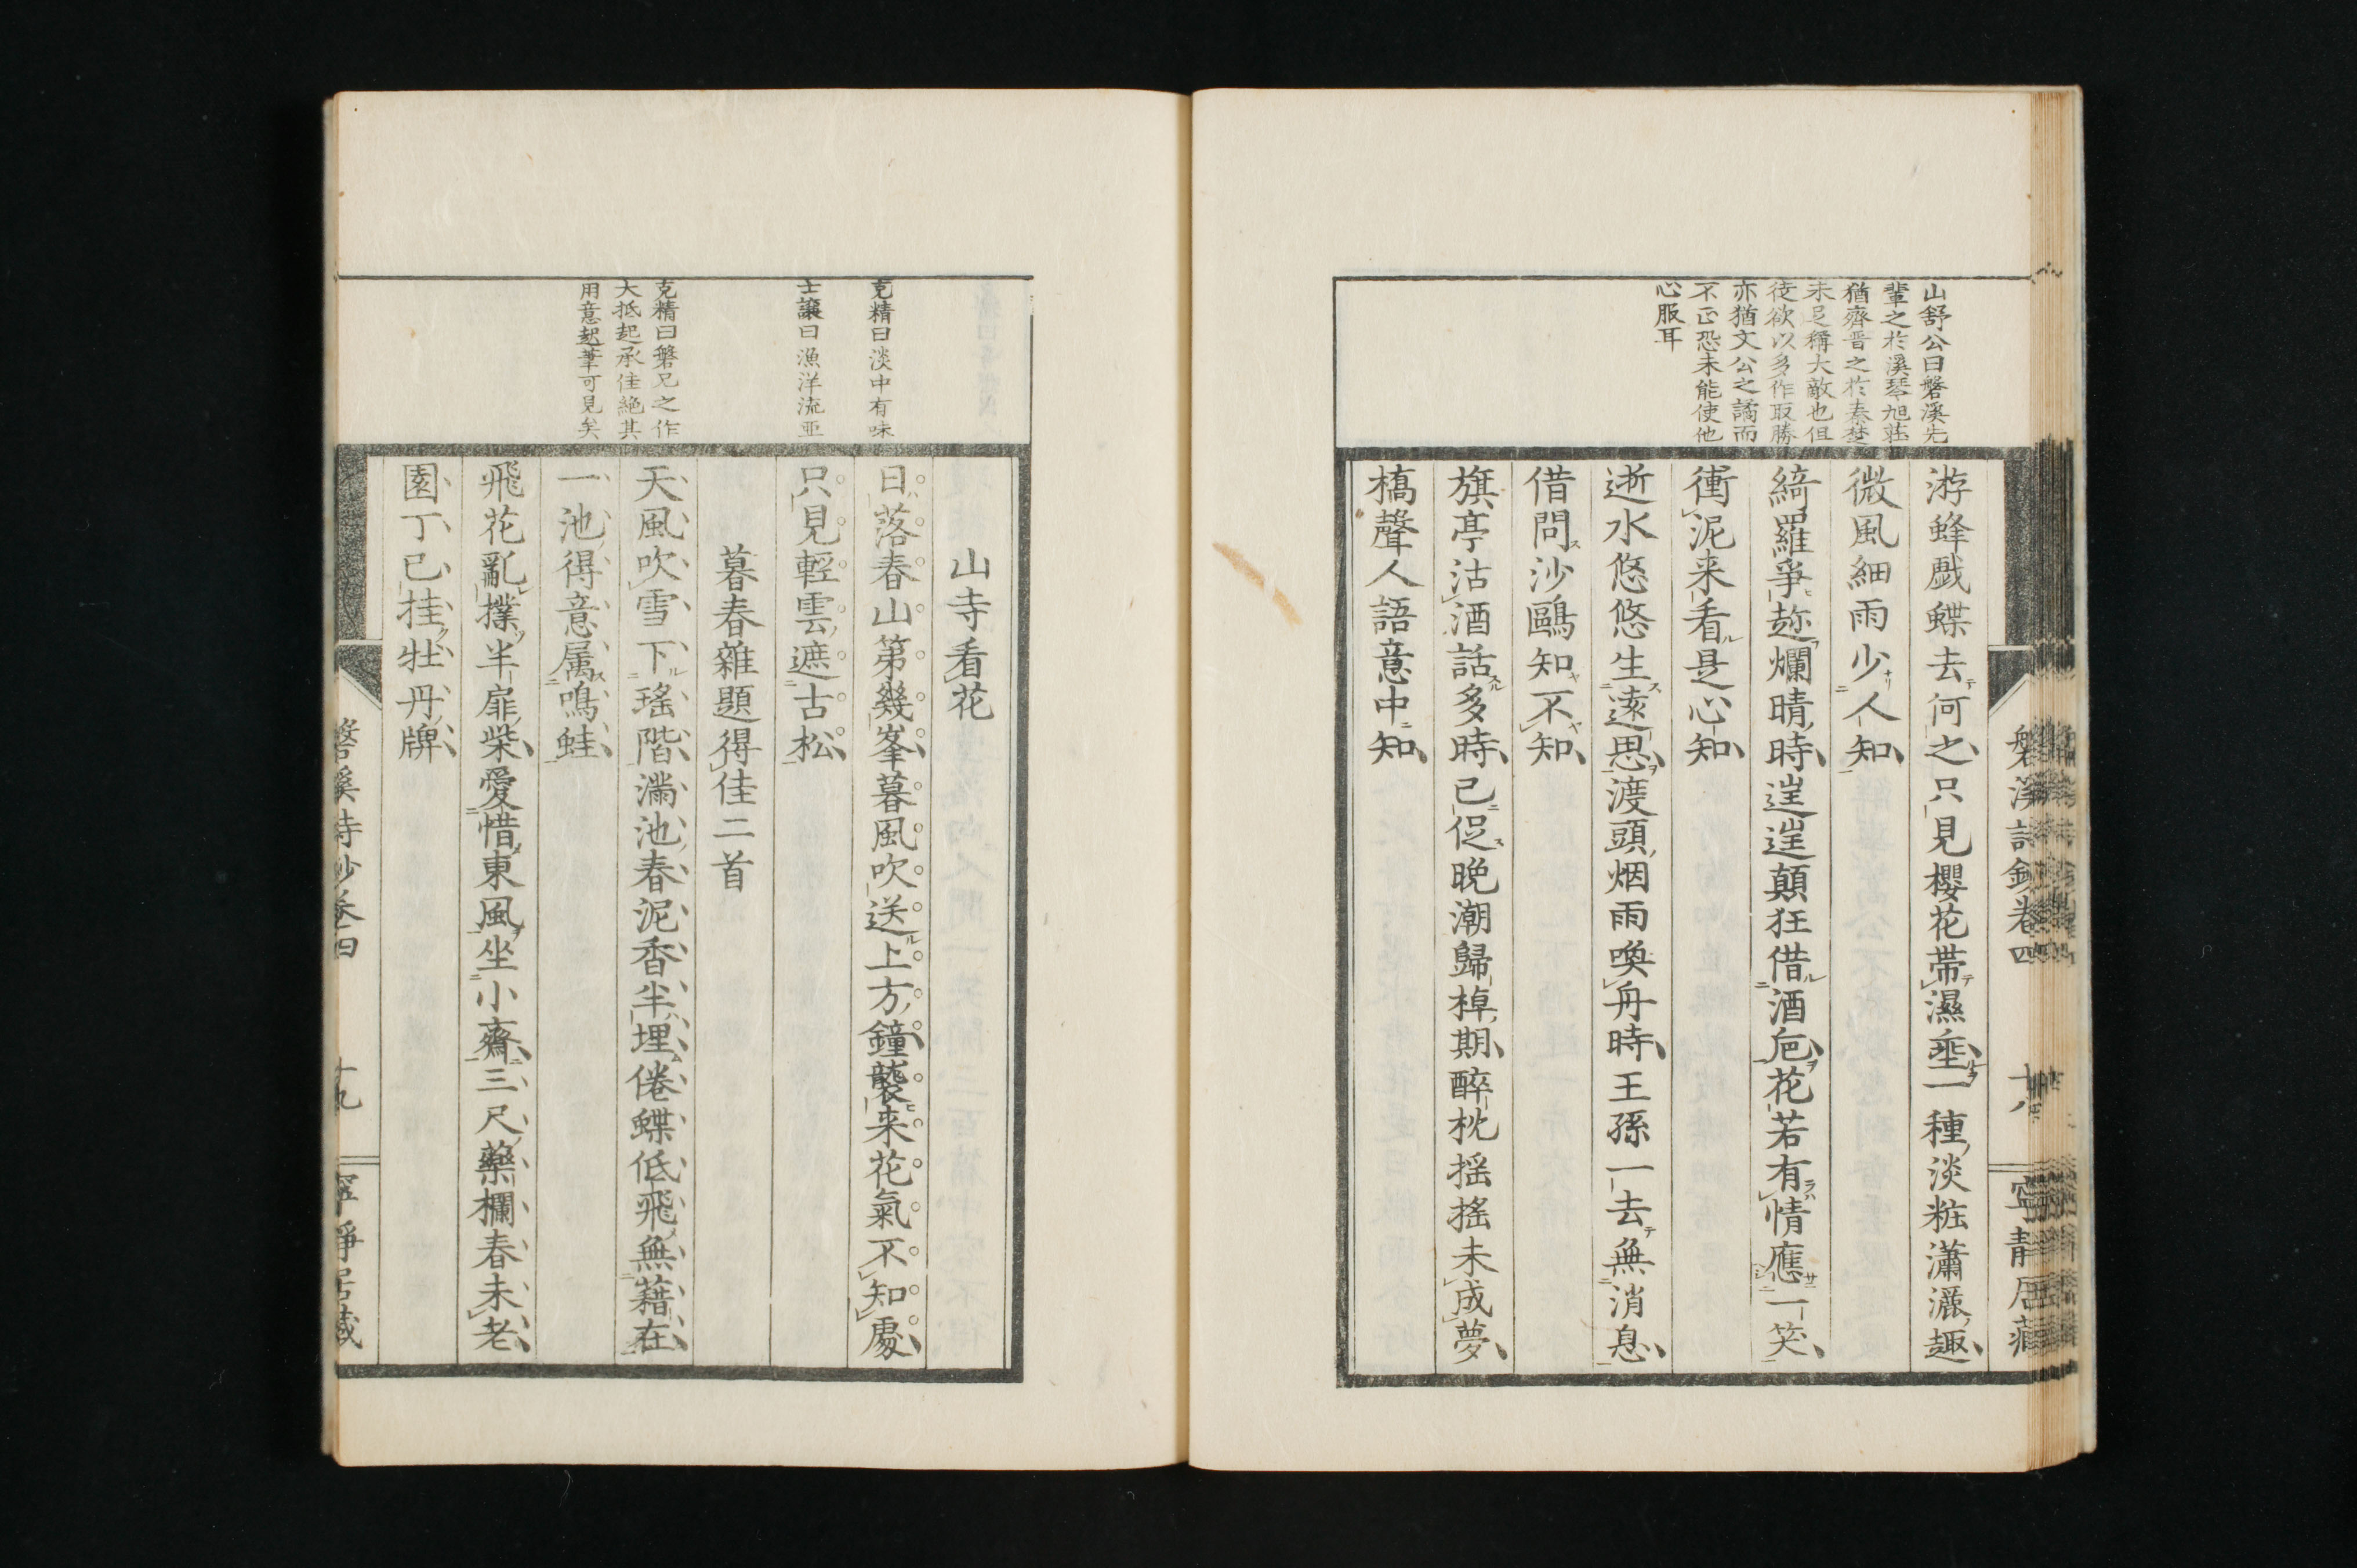 山舒公曰磐溪先
輩之於溪琴旭莊
猶齊晋之於秦楚
未足稱大敵也但
徒欲以多作取勝
亦猶文公之譎而
不正恐未能使他
心服耳
游蜂戯蝶去何之只見櫻花帯濕埀一種淡粧瀟灑趣
微風細雨少人知
綺羅爭趂爛晴時逞逞顛狂借酒巵花若有情應一笑
衝泥来看是心知
逝水悠悠生遠思渡頭烟雨喚舟時王孫一去無消息
借問沙鷗知不知
旗亭沽酒話多時已促晩潮歸棹期醉枕揺揺未成夢
橋聲人語意中知
磐溪詩鈔卷四 十八 寧静居藏
克精曰淡中有味
士讓曰漁洋流亜
克精曰磐兄之作
大抵起承佳絶其
用意起筆可見矣
山寺看花
日落春山第幾峯暮風吹送上方鐘襲来花氣不知處
只見輕雲遮古松
暮春雜題得佳二首
天風吹雪下瑤階満池春泥香半埋倦蝶低飛無藉在
一池得意属鳴蛙
飛花亂撲半扉柴愛惜東風坐小齋三尺藥欄春未老
園丁已挂牡丹牌
磐溪詩鈔卷四 十九 寧静居藏